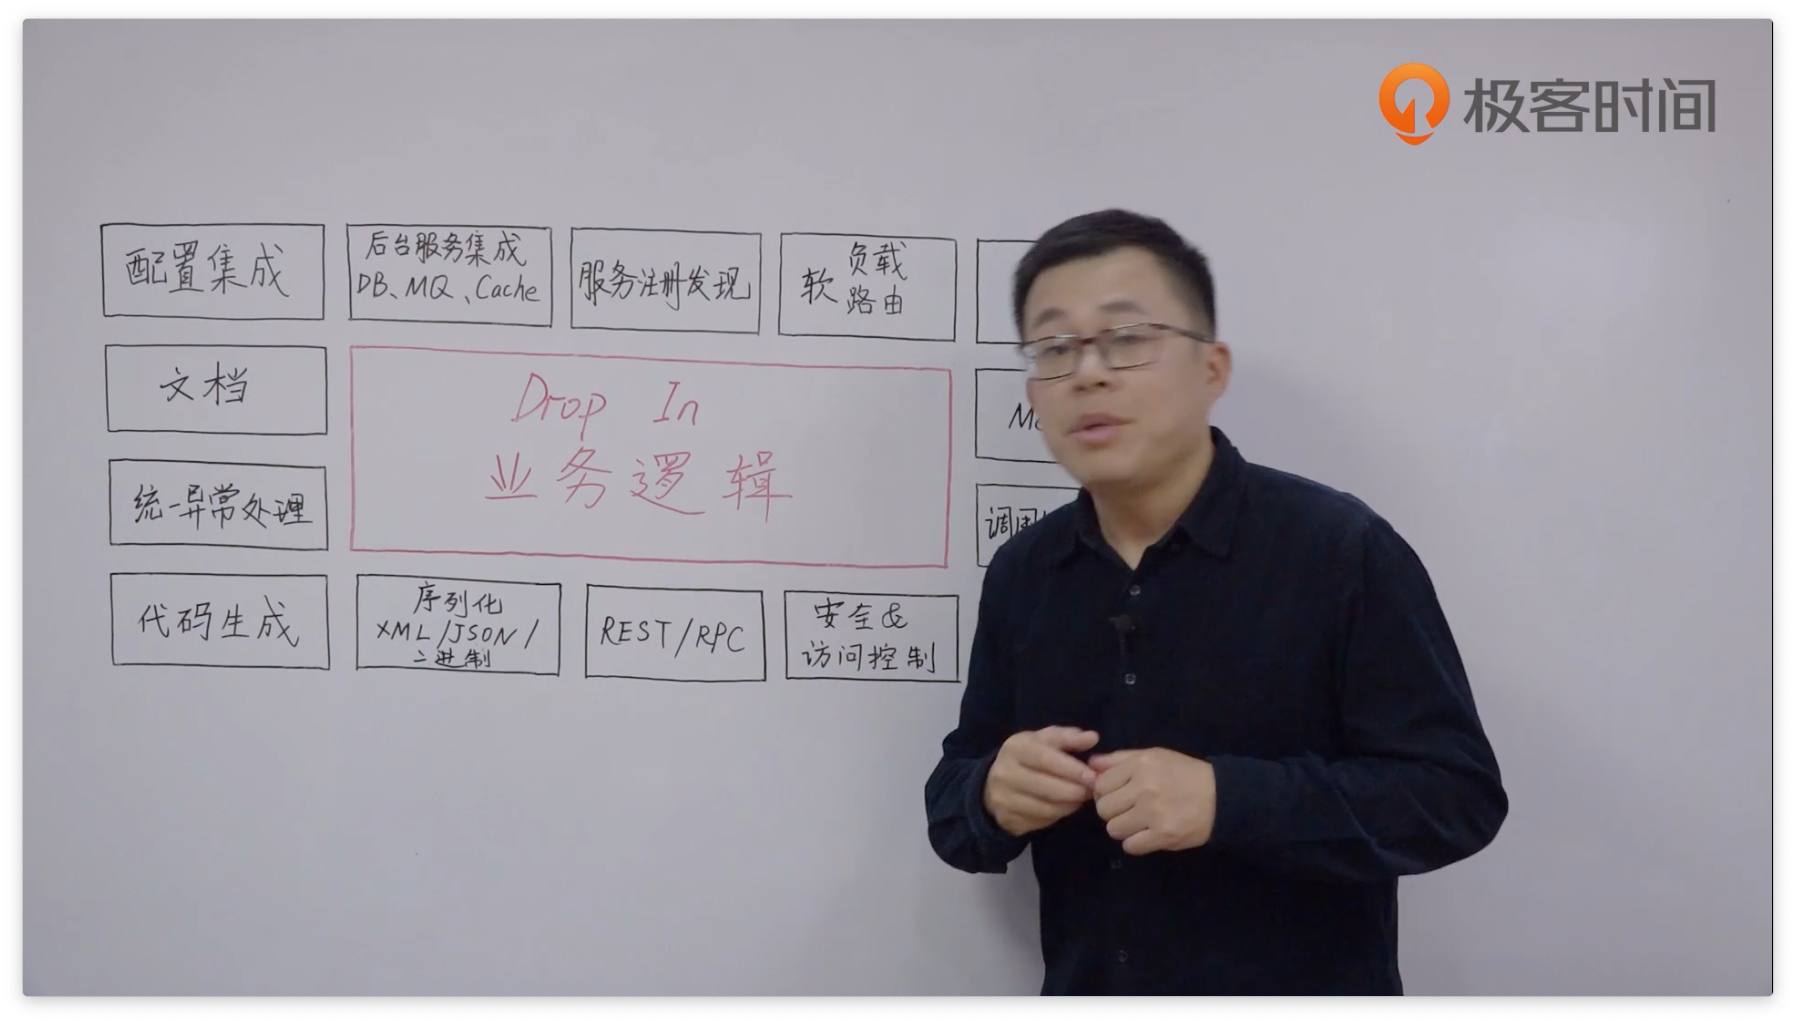 极客时间
配置集成
后台服务集成
DB、MQ、Cache
服务注册发现
软 负载
路由
文档
Drop In
业务逻辑
统一异常处理
代码生成
序列化
XML/JSON/
二进制
REST/RPC
安全&
访问控制